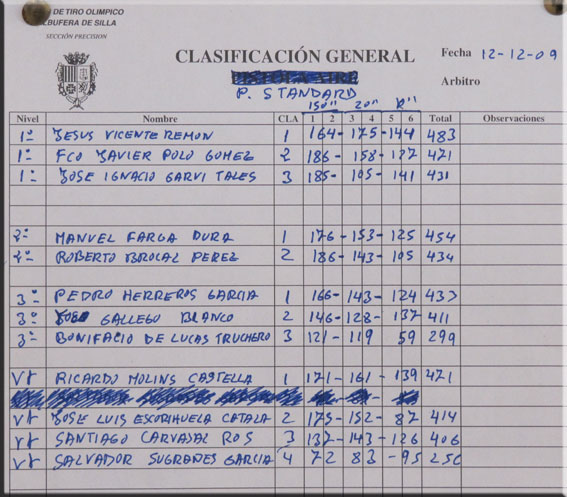 DE TIRO OLIMPICO
ALBUFERA DE SILLA
SECCIÓN PRECISION
CLASIFICACIÓN GENERAL
Fecha 12-12-09
Arbitro
P. STANDARD
150" 20"
Nivel Nombre CLA 1 2 3 4 5 6 Total Observaciones
1º JESUS VICENTE REMON 1 164- 175- 144 483
1º FCO JAVIER POLO GOMEZ 2 186- 158- 127 471
1º JOSE IGNACIO GARVI TALES 3 185- 105- 141 431
2º MANUEL FARGA DURA 1 176- 153- 125 454
2º ROBERTO BROCAL PEREZ 2 186- 143- 105 434
3º PEDRO HERREROS GARCIA 1 166- 143- 124 433
3º JOSE GALLEGO BLANCO 2 146- 128- 137 411
3º BONIFACIO DE LUCAS TRUCHERO 3 121- 119 59 299
Vt RICARDO MOLINS CASTELLA 1 171- 161- 139 471
Vt JOSE LUIS ESCRIHUELA CATALA 2 175- 152- 87 414
Vt SANTIAGO CARVAJAL ROS 3 137- 143- 126 406
Vt SALVADOR SUGRAÑES GARCIA 4 72 83 -95 250